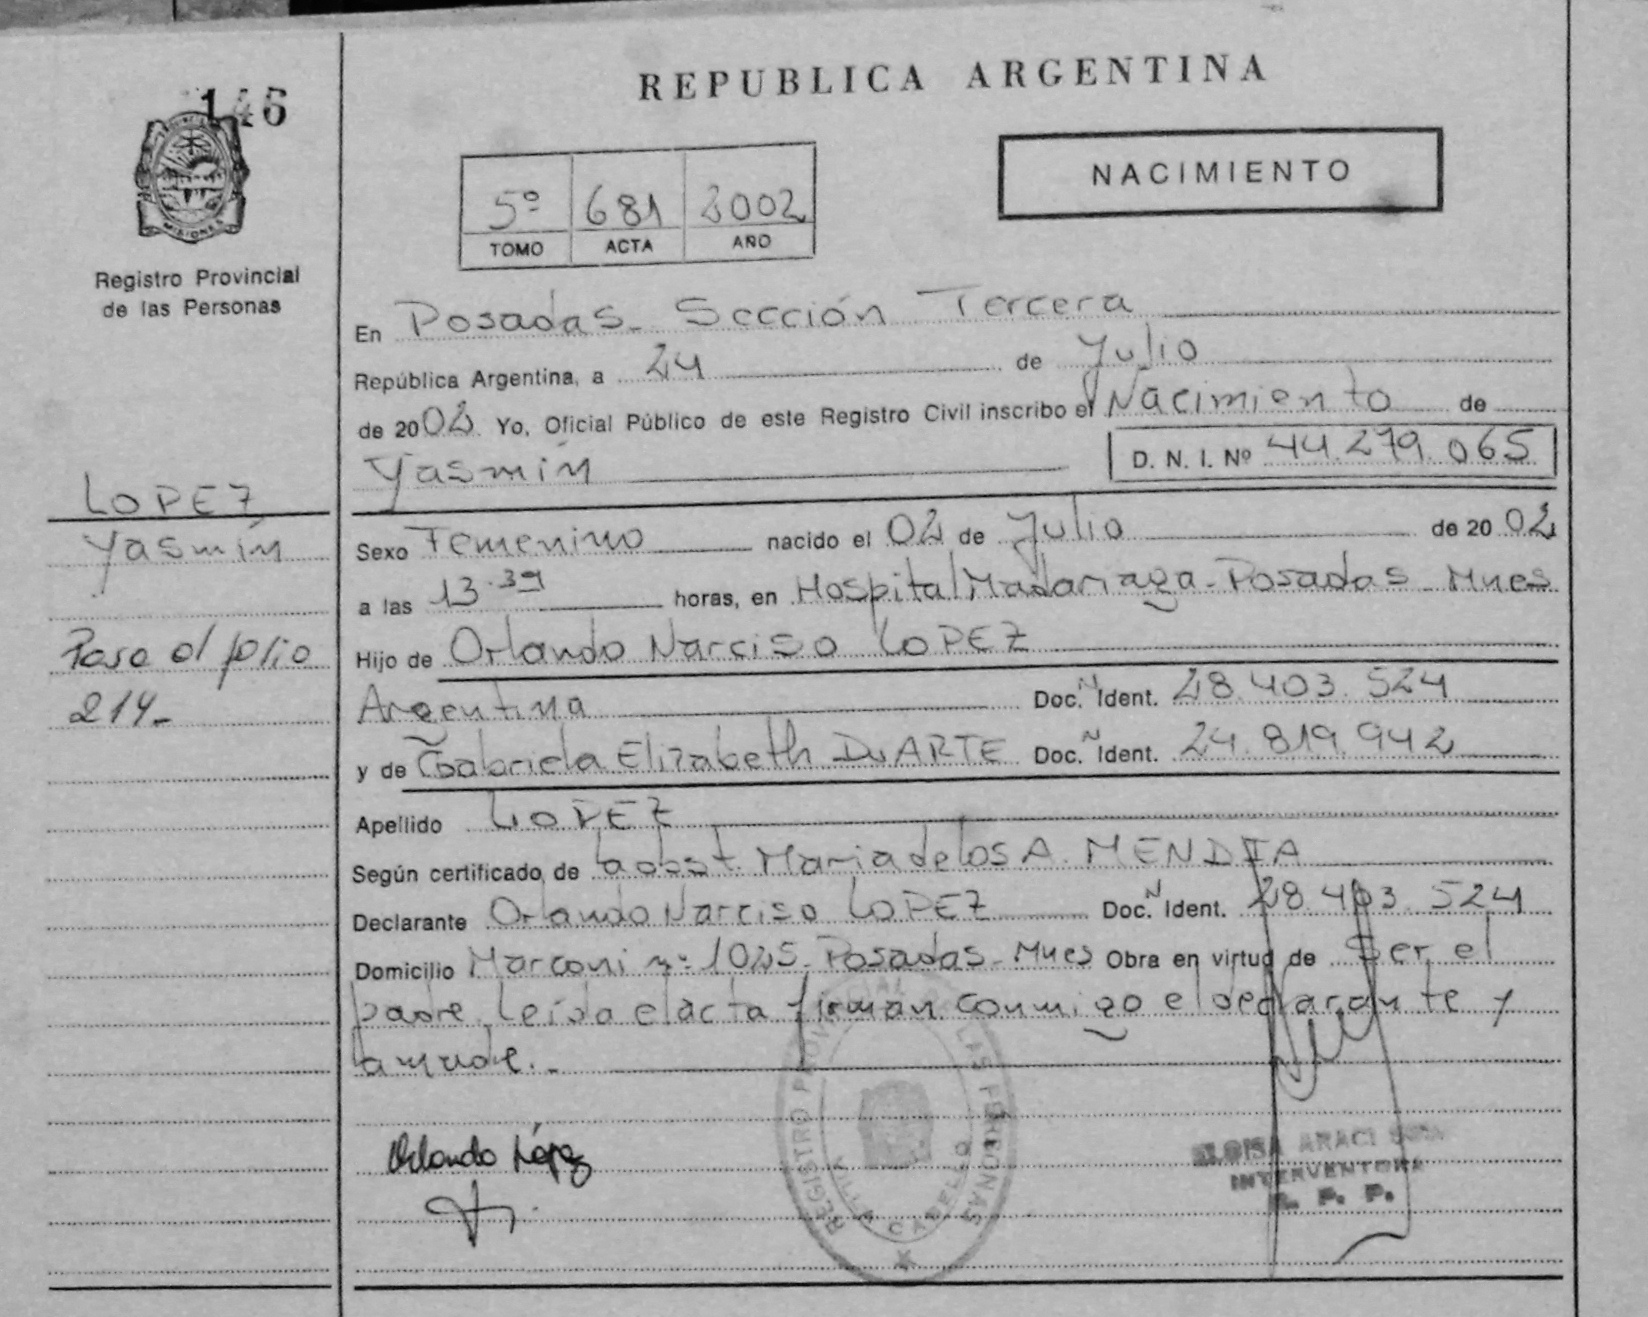 146
REPUBLICA ARGENTINA
NACIMIENTO
5º 681 2002
TOMO ACTA AÑO
MISIONES
Registro Provincial
de las Personas
En Posadas - Sección Tercera
República Argentina, a 24 de Julio
de 2002 Yo, Oficial Público de este Registro Civil inscribo el Nacimiento de
Yasmín D. N. I. Nº 44.279.065
LOPEZ
Yasmín
Pasa al folio
214-
Sexo Femenino nacido el 02 de Julio de 2002
a las 13.39 horas, en Hospital Madariaga - Posadas - Mnes
Hijo de Orlando Narciso LOPEZ
Argentina Doc. N Ident. 28.403.524
y de Gabriela Elizabeth DUARTE Doc. N Ident. 24.819.942
Apellido LOPEZ
Según certificado de la obst. Maria de los A. MENDIA
Declarante Orlando Narciso LOPEZ Doc. N Ident. 28.403.524
Domicilio Marconi nº 1025 - Posadas - Mnes Obra en virtud de Ser el
padre. Leída el acta firman conmigo el declarante y
la madre.-
Orlando López
REGISTRO PROVINCIAL DE LAS PERSONAS
CABELLO
ELOISA ARACI
INTERVENTORA
R. P. P.